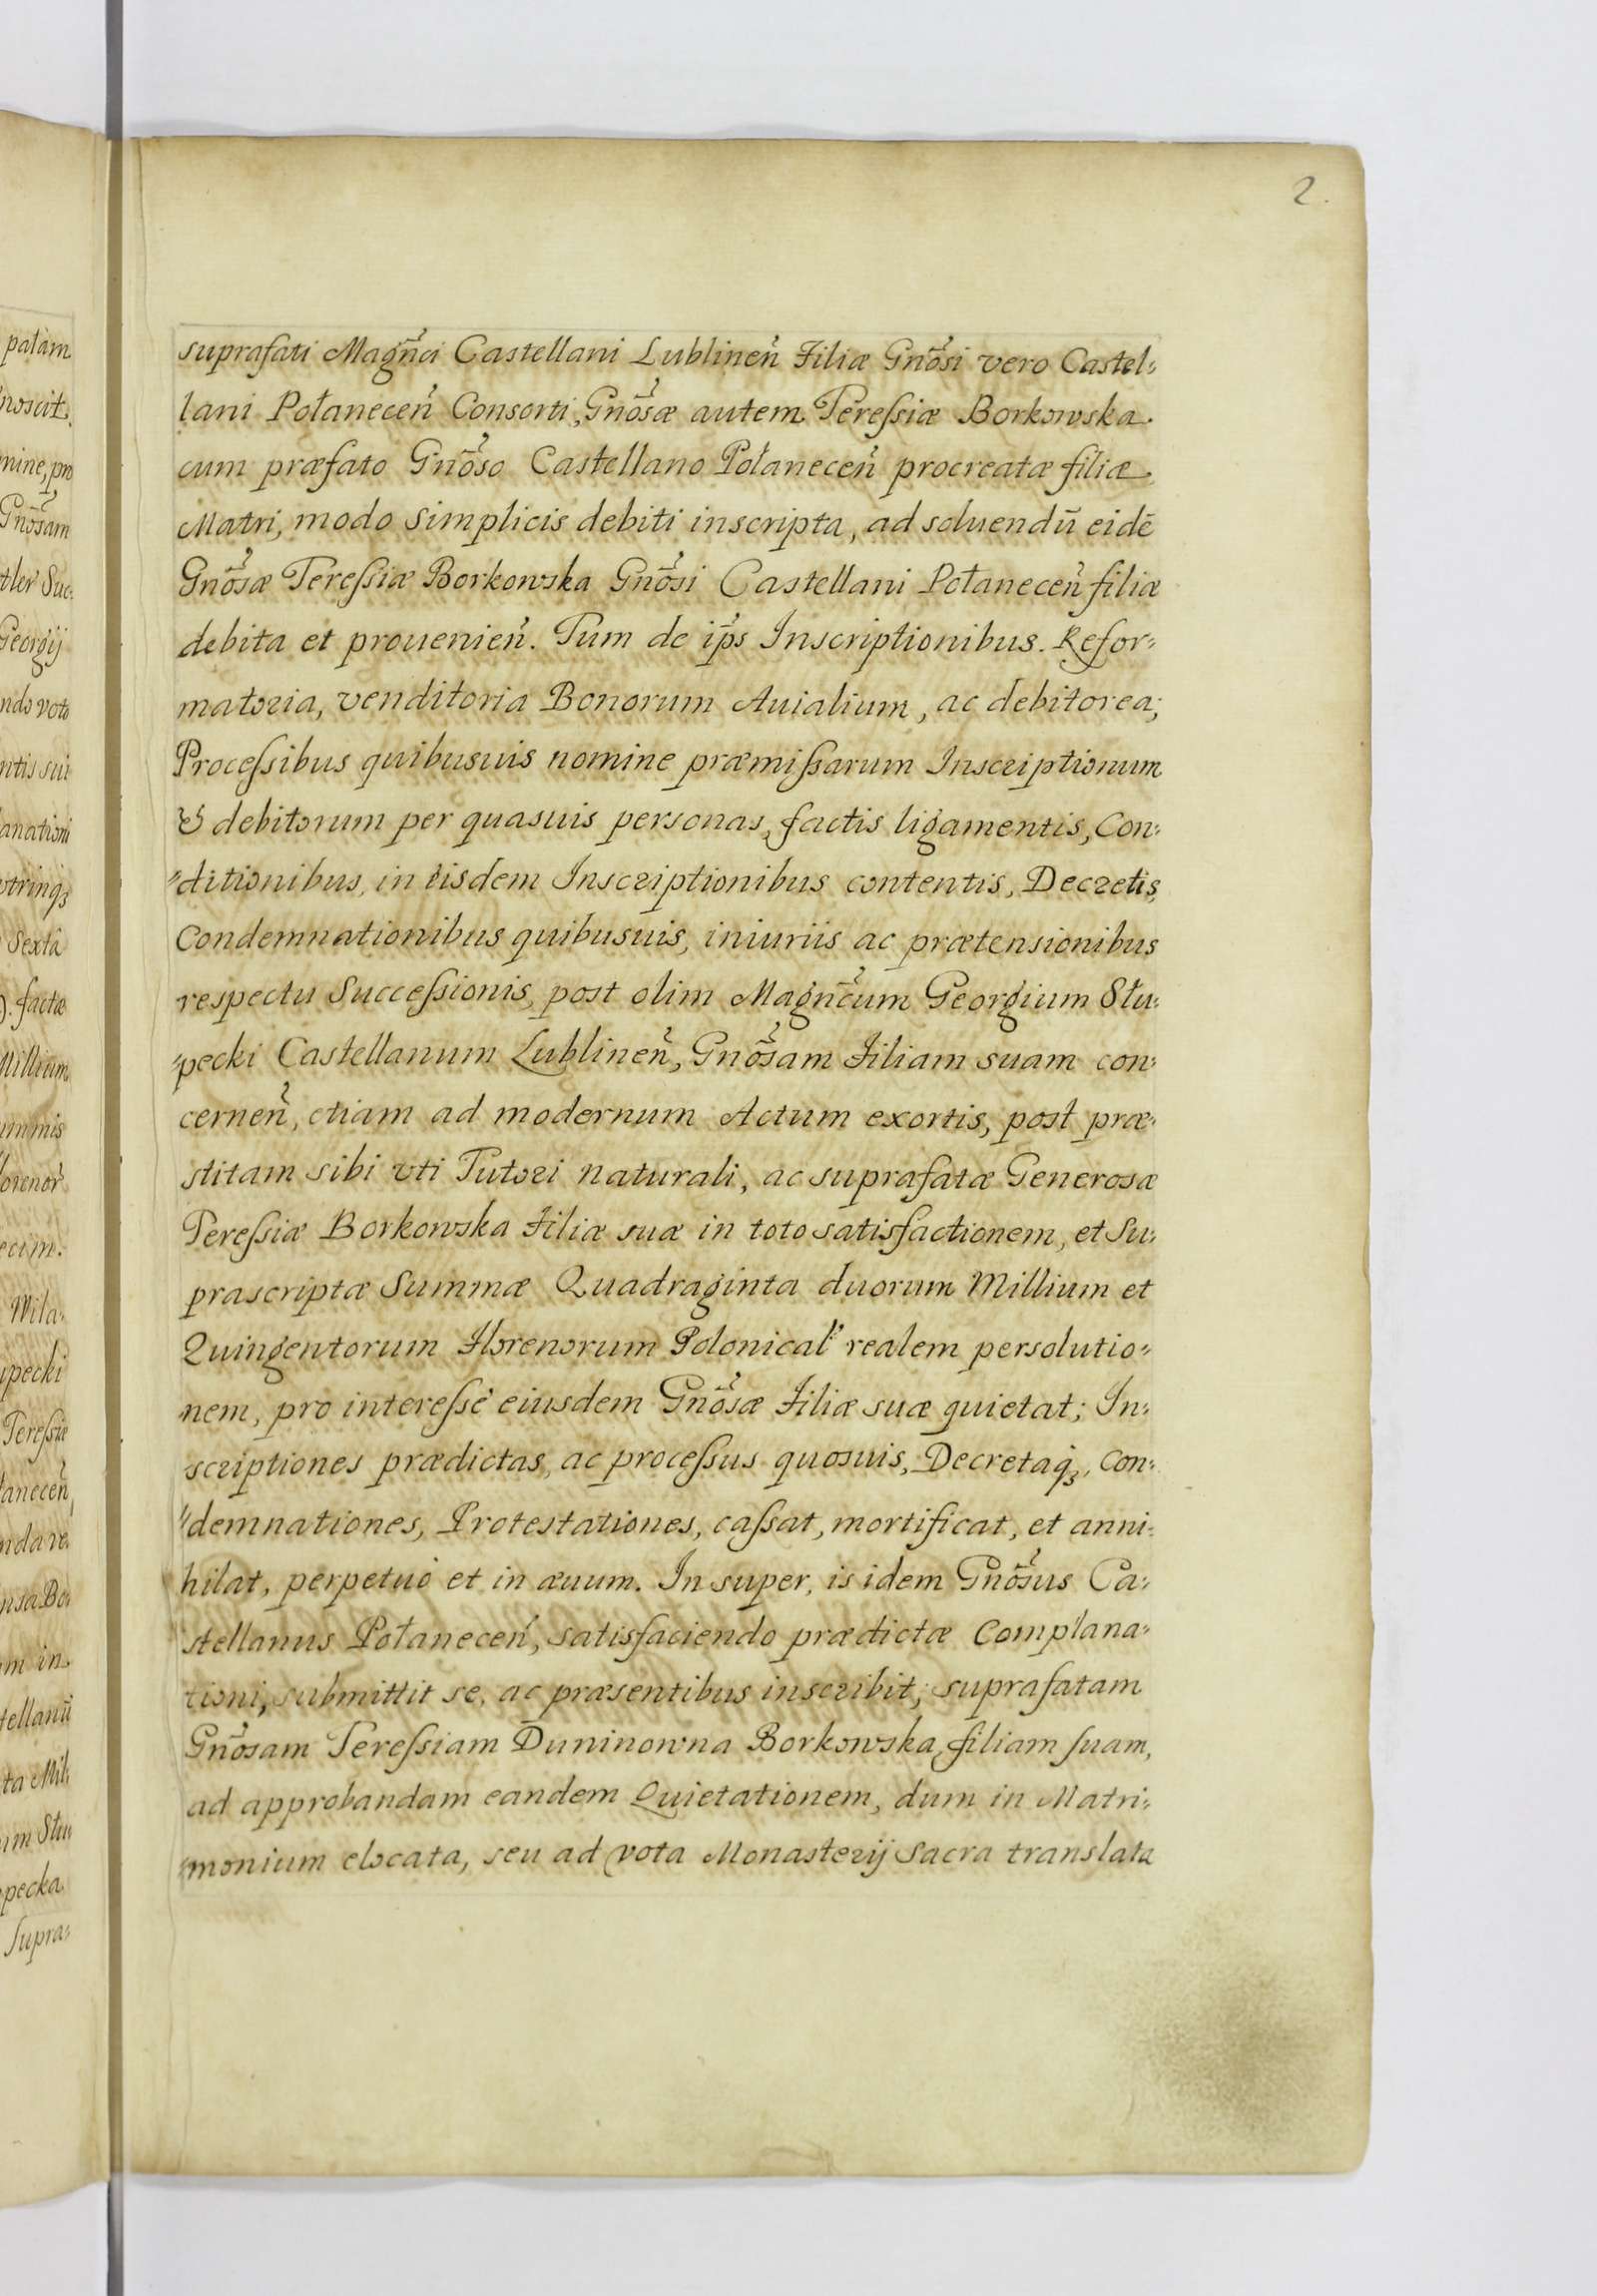 2.
suprafati Magñci Castellani Lublineñ Filiæ Gnõsi vero Castel-
lani Połaneceñ Consorti, Gnõsæ autem Tereſsiæ Borkowska
cum præfato Gnõso Castellano Połaneceñ procreatæ filiæ
Matri, modo Simplicis debiti inscripta, ad soluendũ eidẽ
Gnõsæ Tereſsiæ Borkowska Gnõsi Castellani Połaneceñ filiæ
debita et prouenieñ. Tum de ip̃s Inscriptionibus. Refor-
matoria, venditoria Bonorum Auialium, ac debitorea;
Proceſsibus quibusuis nomine præmiſsarum Inscriptionum
& debitorum per quasuis personas, factis ligamentis, Con-
ditionibus, in iisdem Inscriptionibus contentis, Decretis,
Condemnationibus quibusuis, iniuriis ac prætensionibus
respectu Succeſsionis, post olim Magñcum Georgium Słu-
pecki Castellanum Lublineñ, Gnõsam Filiam suam con-
cerneñ, etiam ad modernum Actum exortis, post præ-
stitam sibi vti Tutori naturali, ac suprafatæ Generosæ
Tereſsiæ Borkowska Filiæ suæ in toto satisfactionem, et Su-
prascriptæ Summæ Quadraginta duorum Millium et
Quingentorum Florenorum Polonical' realem persolutio-
nem, pro intereſsé eiusdem Gnõsæ Filiæ suæ quietat; In-
scriptiones prædictas, ac proceſsus quosuis, Decretaqꝫ, Con-
demnationes, Protestationes, caſsat, mortificat, et anni-
hilat, perpetuò et in æuum. In super, is idem Gnõsus Ca-
stellanus Połaneceñ, satisfaciendo prædictæ Complana-
tioni, submittit se, ac præsentibus inscribit; suprafatam
Gnõsam Tereſsiam Duninowna Borkowska, filiam ſuam,
ad approbandam eandem Quietationem, dum in Matri-
monium elocata, seu ad vota Monasterij Sacra translata